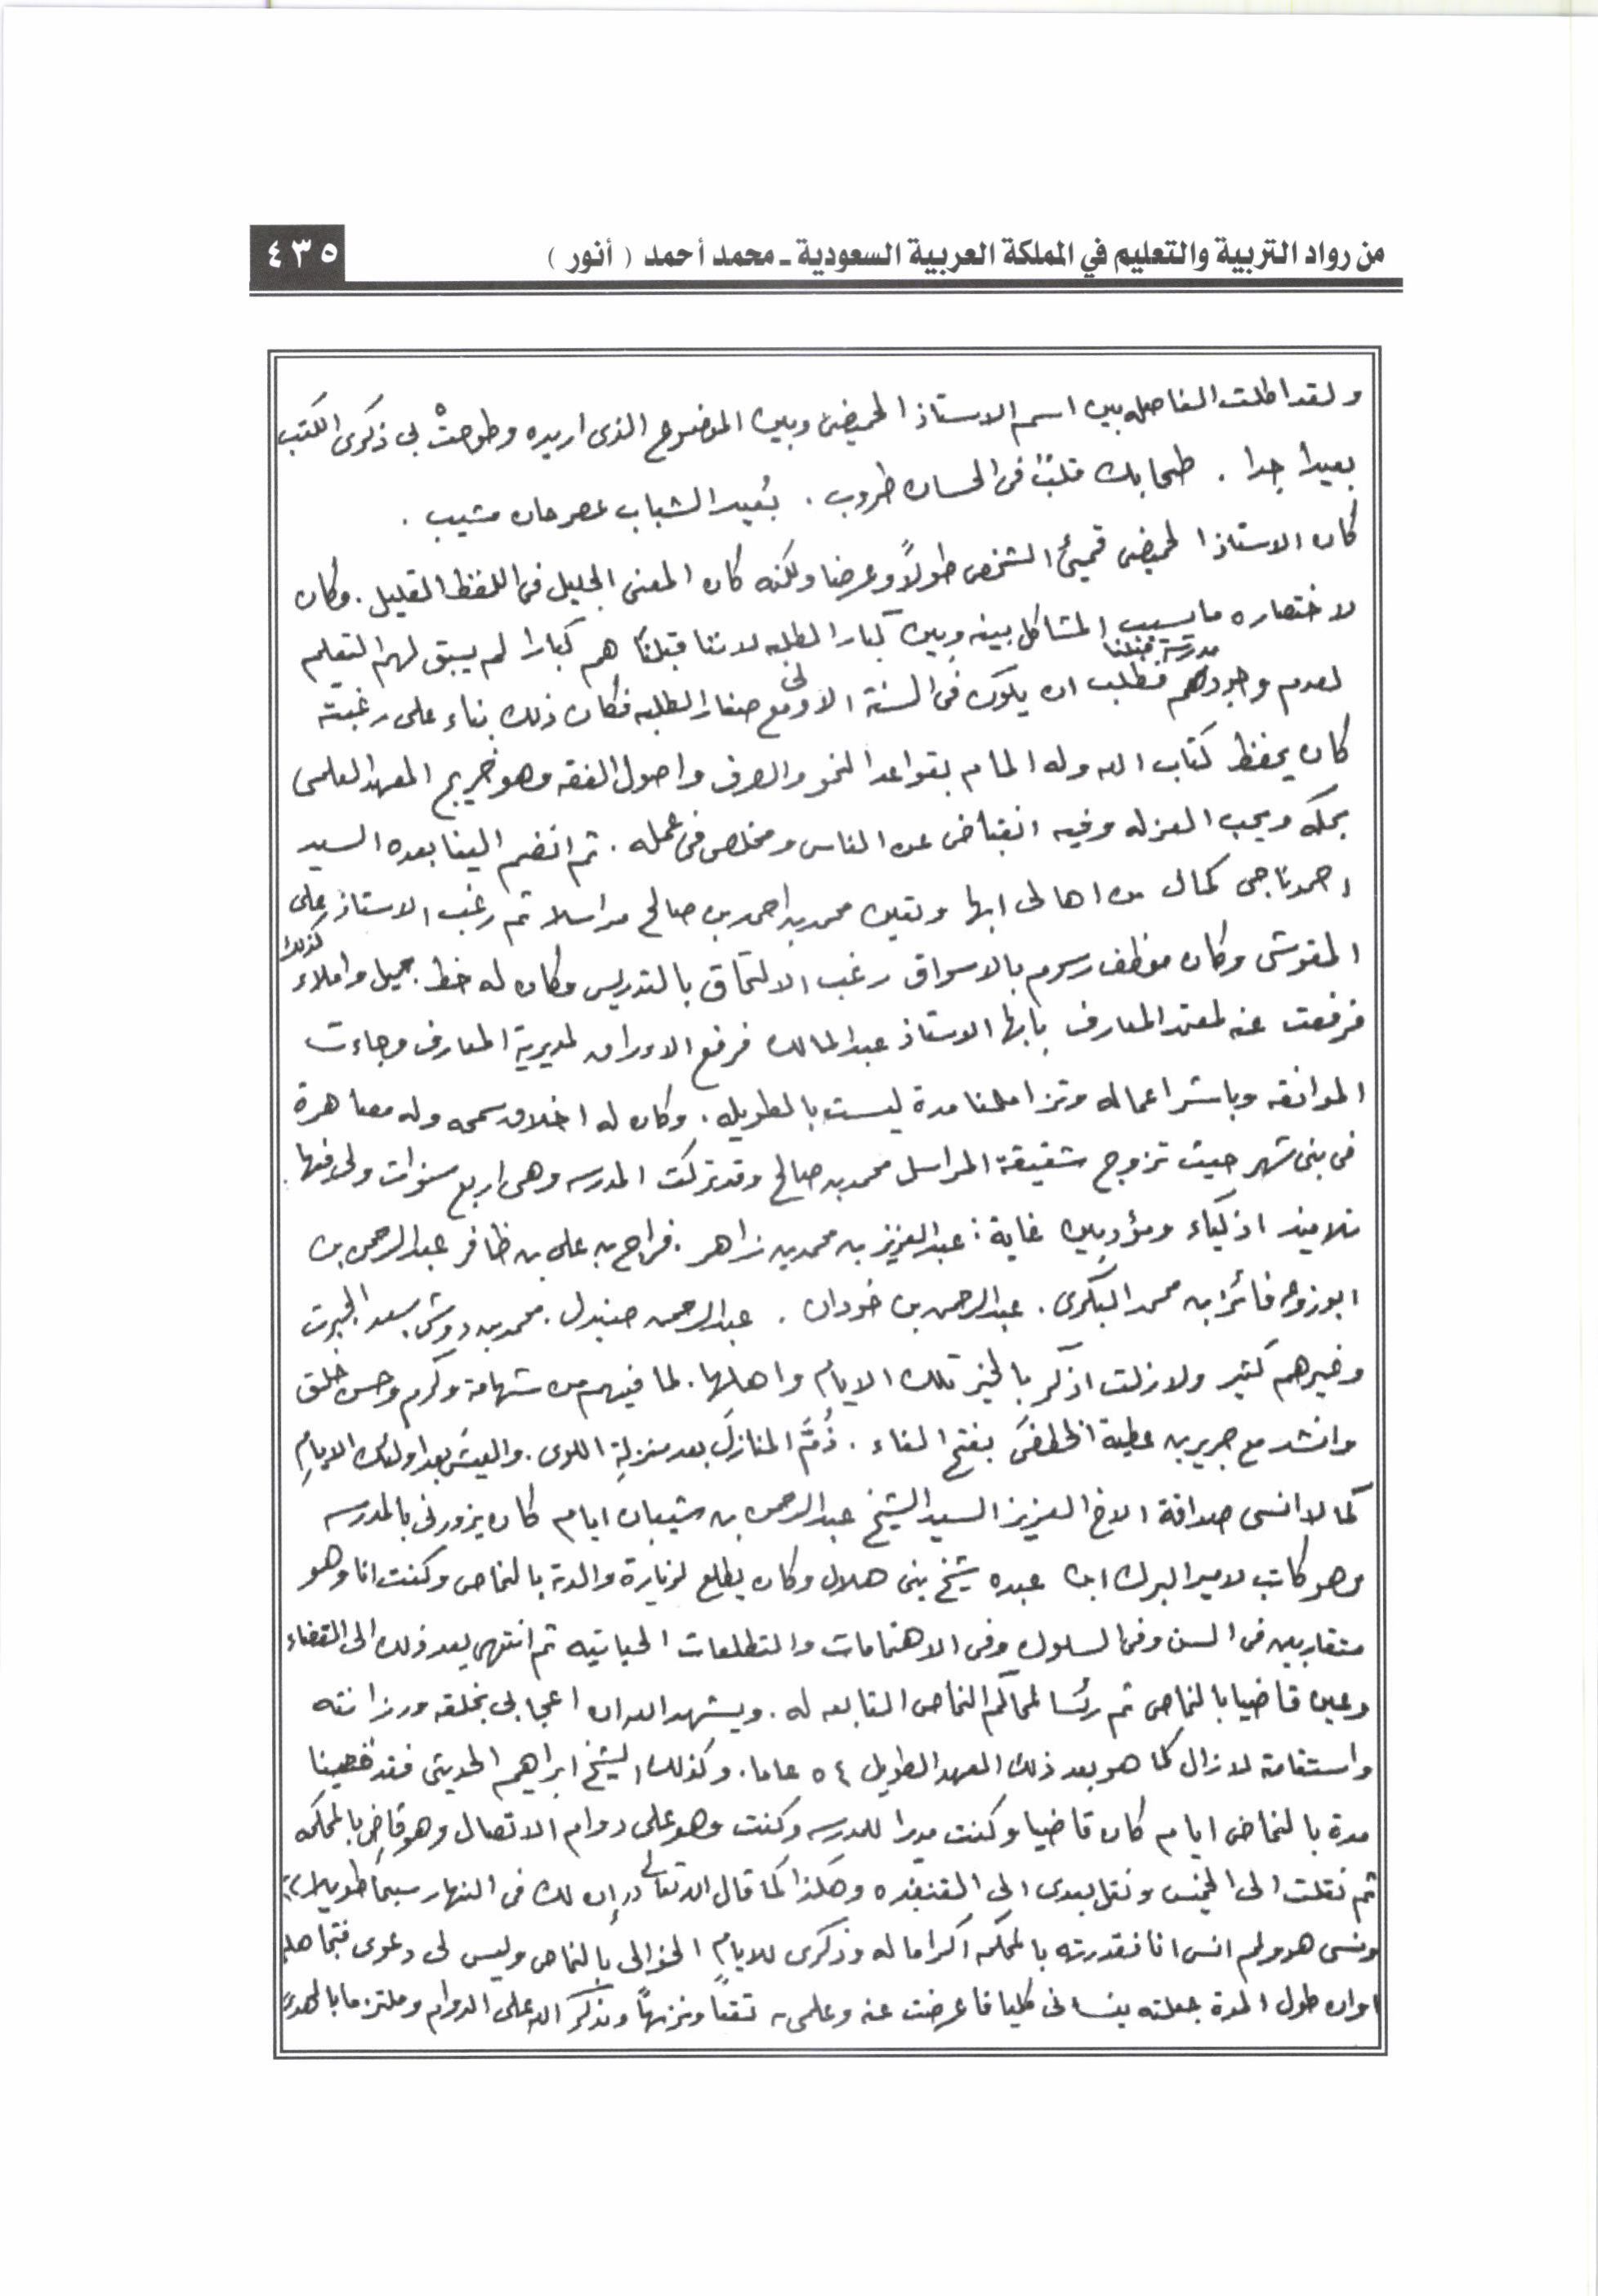 من رواد التربية والتعليم في المملكة العربية السعودية ـ محمد أحمد ( أنور )
٤٣٥
ولقد اطلت الفاصله بين اسم الاستاذ الحميضى وبين الموضوع الذى اريده وطوحتْ بى ذكرى الكتب
بعيدا جدا . طحا بك قلبٌ فى الحسان طروب . بُعيد الشباب عصر حان مشيب .
كان الاستاذ الحميضى قميئ الشخص طولاً وعرضا ولكنه كان المعنى الجليل فى اللفظ القليل . وكان
لاختصاره ما يسبب المشاكل بينه وبين كبار الطلبه لاننا قبلنا هم كبارا لم يسبق لهم التعليم
لعدم وجود مدرسة قبلنا فطلب ان يكون فى السنة الاولى مع صغار الطلبه فكان ذلك بناء على رغبته
كان يحفظ كتاب الله وله المام بقواعد النحو والصرف واصول الفقه وهو خريج المعهد العلمى
بمكه ويحب العزله وفيه انقباض عن الناس ومخلص فى عمله . ثم انضم الينا بعده السيد
احمد ناجى كمال من اهالى ابها وتعين محمد بن احمد بن صالح مراسلا ثم رغب الاستاذ على
المقوشى وكان موظف رسوم بالاسواق رغب الالتحاق بالتدريس وكان له خط جميل واملاء كذلك
فرفعت عنه لمعتمد المعارف بابها الاستاذ عبد المالك فرفع الاوراق لمديرية المعارف وجاءت
الموافقه وباشر اعماله وتزاملنا مدة ليست بالطويله . وكان له اخلاق سمحه وله مصاهرة
فى بنى شهر حيث تزوج شقيقة المراسل محمد بن صالح وقد تركت المدرسه وهى اربع سنوات ولى فيها
تلاميذ اذكياء ومؤدبين غاية : عبد العزيز بن محمد بن زاهر . فراج بن على بن ظافر عبد الرحمن بن
ابو زوعه فائز ابن محمد البكرى . عبد الرحمن بن خودان . عبد الرحمن صنيدل . محمد بن دوش سعد
وغيرهم كثير ولا زلت اذكر بالخير تلك الايام واهلها . لما فيهم من شهامة وكرم وحسن خلق
وانشد مع جرير بن عطية الخطفَى بفتح الفاء . ذُمَّ المنازلَ بعد منزلةِ اللوى . والعيشَ بعد اولئك الايامِ
كما لا انسى صداقة الاخ العزيز السيد الشيخ عبد الرحمن بن شيبان ايام كان يزورنى بالمدرسه
وهو كاتب لامير البرك ابن عبده شيخ بنى هلال وكان يطلع لزيارة والدته بالنماص وكنت انا وهو
متقاربين فى السن وفى السلوك وفى الاهتمامات والتطلعات الحياتيه ثم انتهى بعد ذلك الى القضاء
وعين قاضيا بالنماص ثم رئسا لمحاكم النماص التابعه له . ويشهد الله ان اعجابى بخلقه ورزانته
واستقامته لازال كما هو بعد ذلك العهد الطويل ٥٤ عاما . وكذلك الشيخ ابراهيم الحديثى فقد قضينا
مدة بالنماص ايام كان قاضيا وكنت مديرا للمدرسه وكنت وهو على دوام الاتصال وهو قاضٍ بالمحكمه
ثم نقلت الى الخميس ونقل بعدى الى القنفذه وهكذا كما قال الله تعالى (( إن لك فى النهار سبحا طويلا ))
ونسى هو ولم انس انا فقد زرته بالمحكمه اكراما له وذكرى للايام الخوالى بالنماص وليس لى دعوى فتجاهلنى
اوان طول المدة جعلته ينسانى كليا فاعرضت عنه وعلمى به تقياً ونزيهاً ويذكر الله على الدوام وملتزما بالهدى